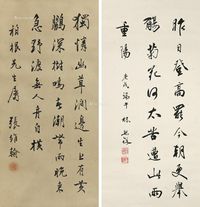 昨日登高罷今朝更舉
觴菊花何太苦遭此兩
重陽
獨憐幽草澗邊生上有黃
鸝深樹鳴春潮帶雨晚來
急野渡無人舟自橫
祖根先生屬 張維翰